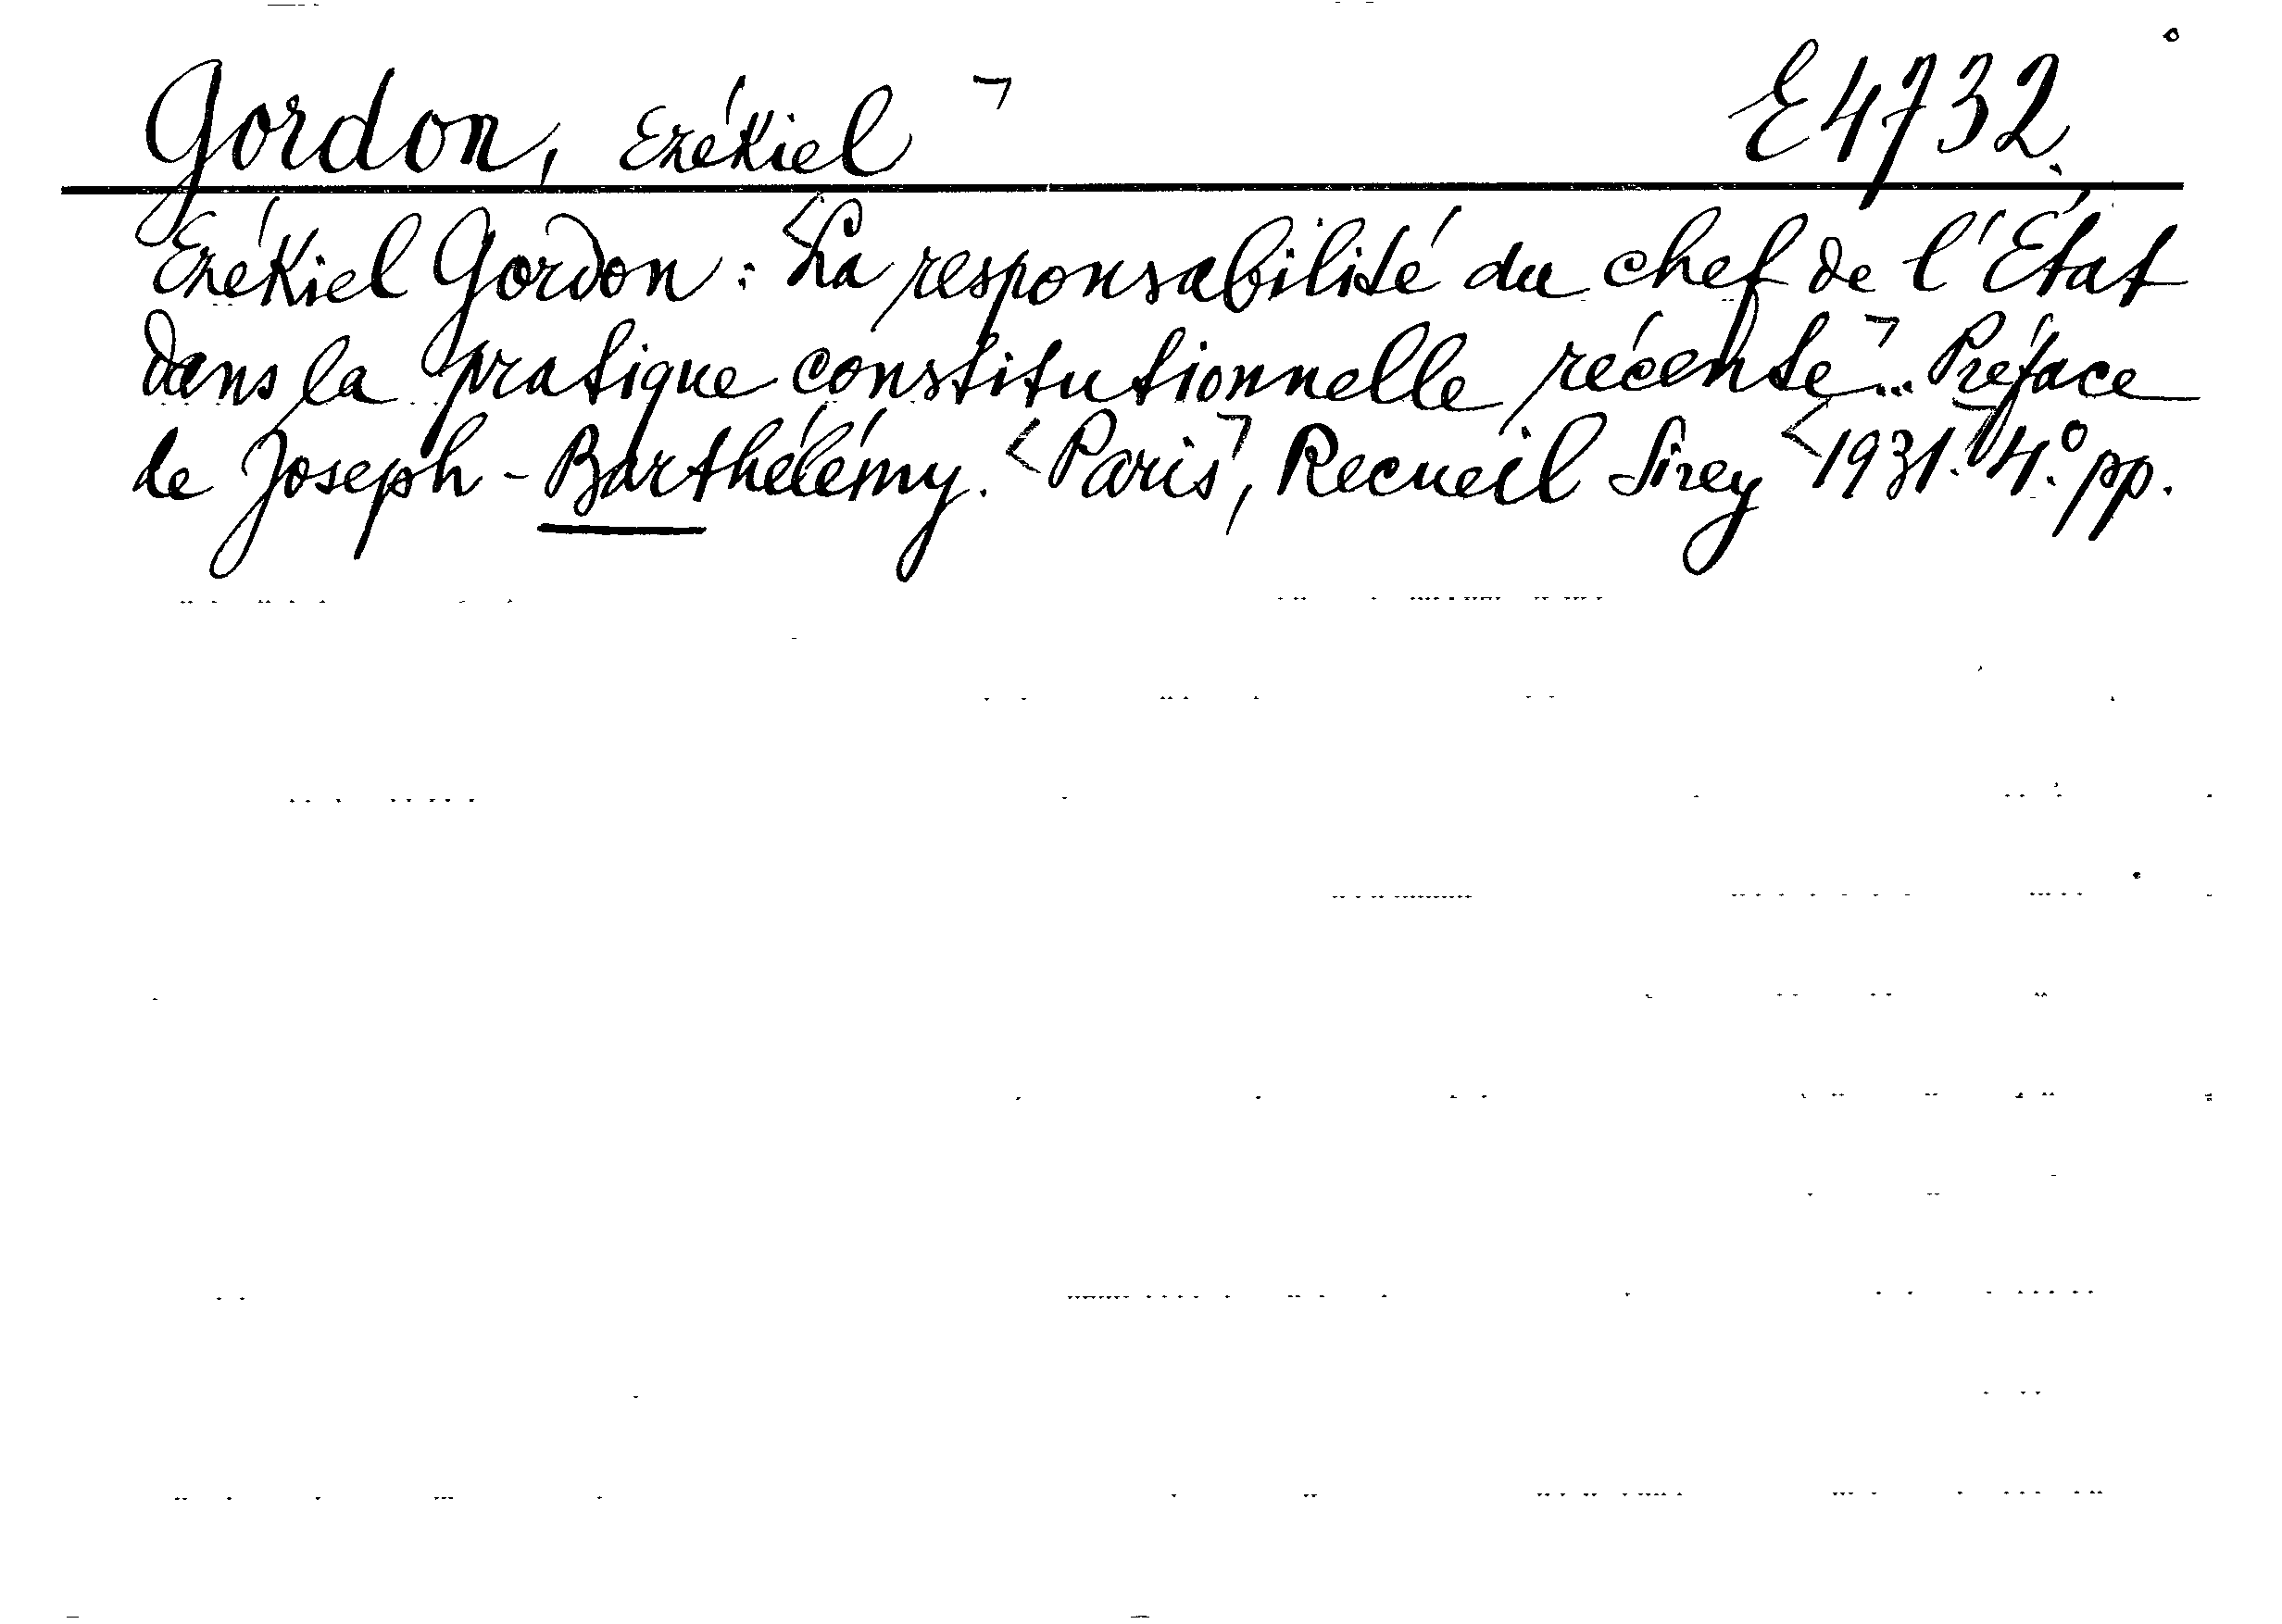 Gordon, Ezékiel ¬ E 4732.
Ezékiel Gordon: <La responsabilité du chef de l'État
dans la pratique constitutionnelle récente¬... Préface
de Joseph-Barthélémy. <Paris¬, Recueil Sirey <1931.¬ 4.° pp.